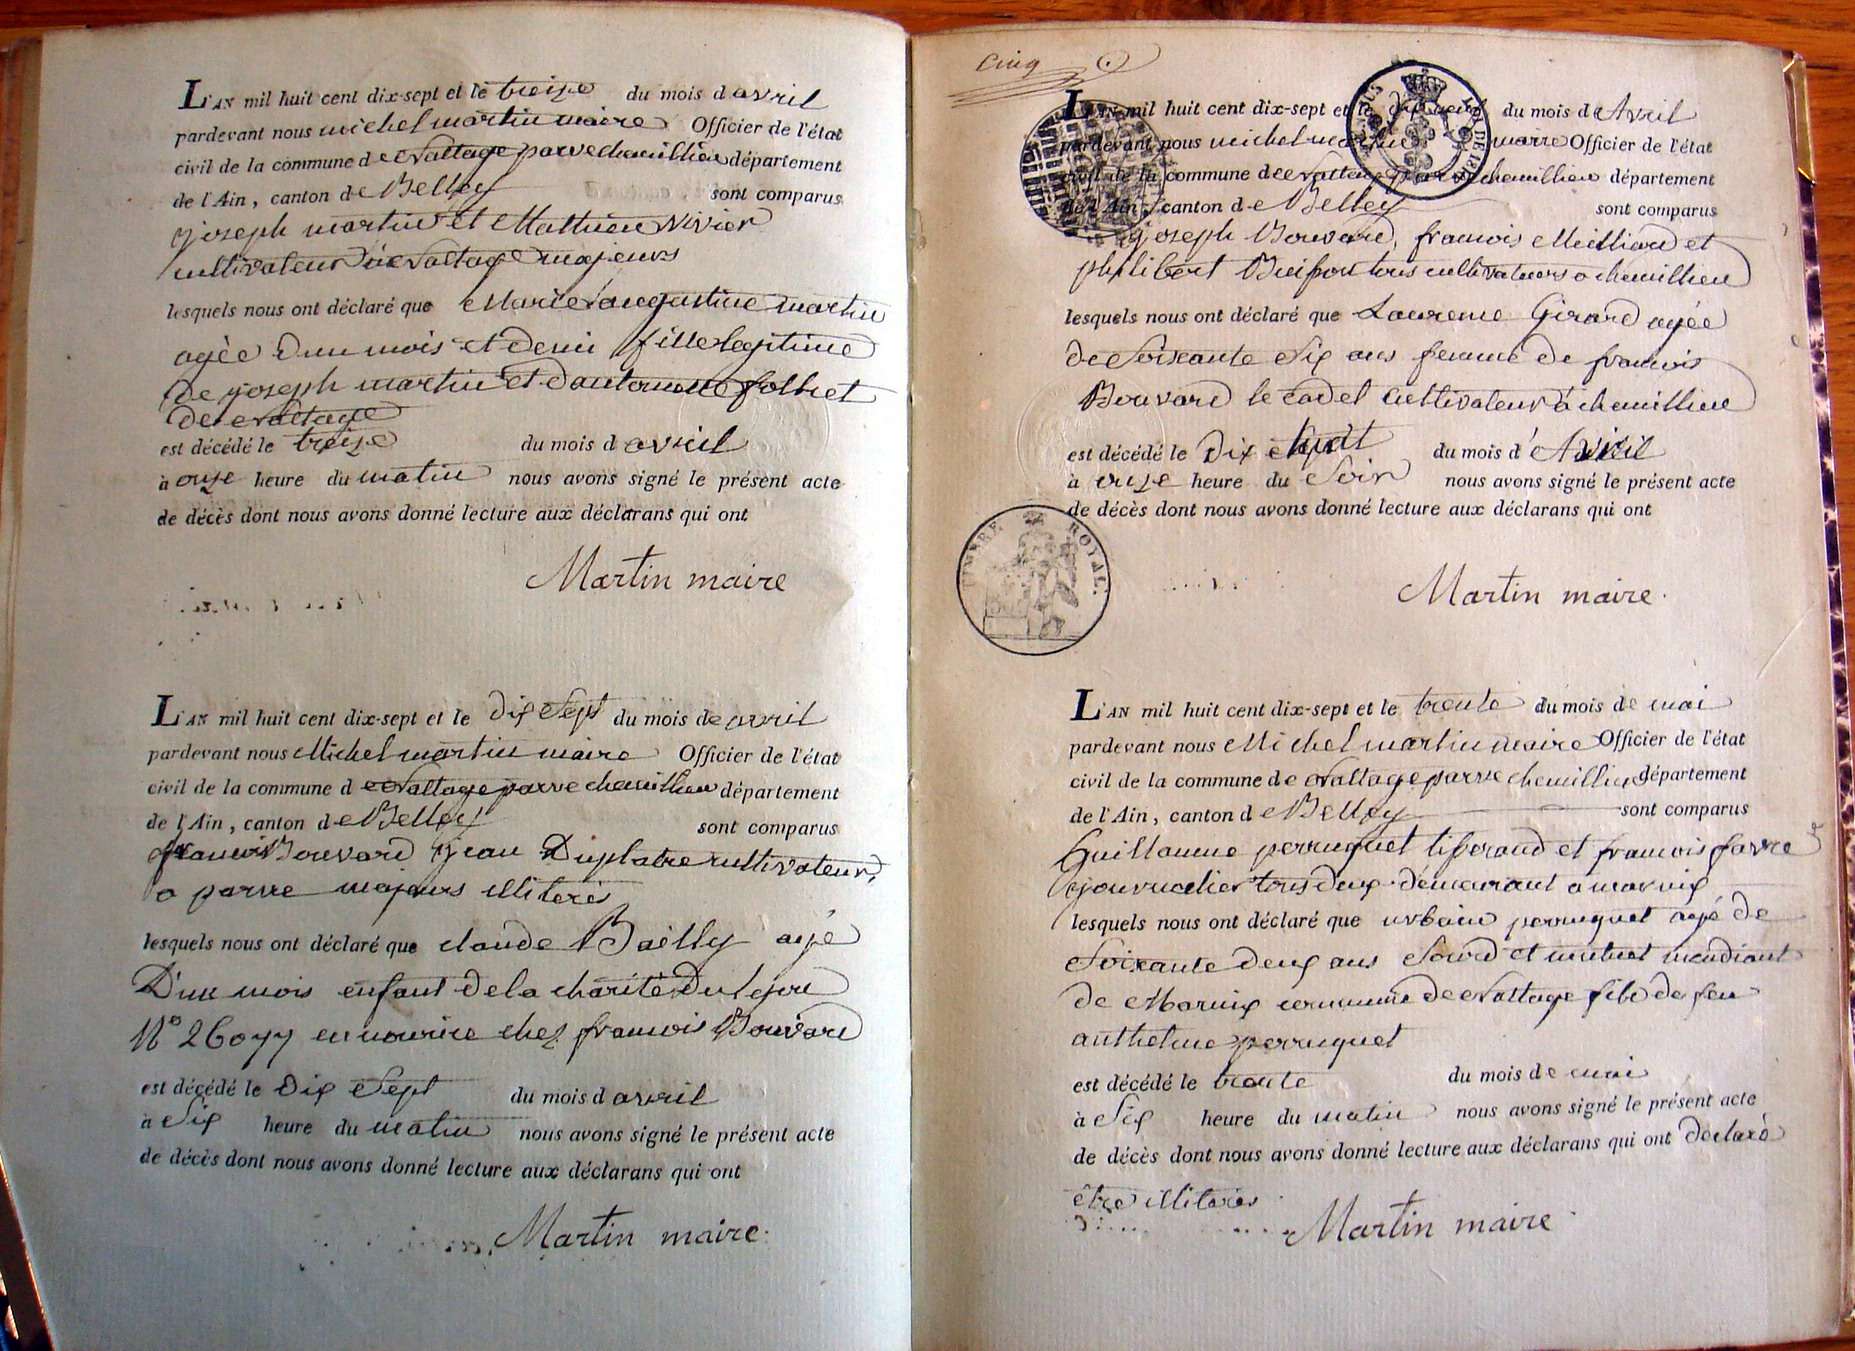 L'AN mil huit cent dix-sept et le treize du mois d avril
pardevant nous michel martin maire Officier de l'état
civil de la commune de Nattage parve chemillieu département
de l'Ain, canton de Belley sont comparus
joseph martin et Mathieu Vivier
cultivateur à Nattage majeurs
lesquels nous ont déclaré que Marie augustine martin
agée d'un mois et demi fille legitime
de joseph martin et d'antoinette folliet
de Nattage
est décédé le treize du mois d avril
à onze heure du matin nous avons signé le présent acte
de décès dont nous avons donné lecture aux déclarans qui ont
Martin maire
L'AN mil huit cent dix-sept et le dix Sept du mois de avril
pardevant nous Michel martin maire Officier de l'état
civil de la commune de Nattage parve chemillieu département
de l'Ain, canton de Belley sont comparus
francois Bouvard jean Duplatre cultivateur
a parve majeurs illiterés
lesquels nous ont déclaré que claude Bailly agé
D'un mois enfant de la charité de
N° 26077 en nourice chez francois Bouvard
est décédé le Dix Sept du mois d avril
à Six heure du matin nous avons signé le présent acte
de décès dont nous avons donné lecture aux déclarans qui ont
Martin maire.
Cinq
L'AN mil huit cent dix-sept et le dix neuf du mois d Avril
pardevant nous michel martin maire Officier de l'état
civil de la commune de Nattage parve chemillieu département
de l'Ain, canton de Belley sont comparus
joseph Bouvard, francois Milliard et
philibert tous cultivateurs a chemillieu
lesquels nous ont déclaré que Laurence Girard agée
de Soixante Six ans femme de francois
Bouvard le cadet cultivateur à chemillieu
est décédé le Dix huit du mois d'Avril
à onze heure du Soir nous avons signé le présent acte
de décès dont nous avons donné lecture aux déclarans qui ont
TIMBRE ROYAL.
Martin maire.
L'AN mil huit cent dix-sept et le trente du mois de mai
pardevant nous Michel martin maire Officier de l'état
civil de la commune de Nattage parve chemillieu département
de l'Ain, canton de Belley sont comparus
Guillaume perruquet tiserand et francois favre
journalier tous deux demeurant a marnix
lesquels nous ont déclaré que urbain perruquet agé de
Soixante deux ans Sourd et muet mendiant
de Marnix commune de Nattage fils de feu
anthelme perruquet
est décédé le trente du mois de mai
à Six heure du matin nous avons signé le présent acte
de décès dont nous avons donné lecture aux déclarans qui ont déclaré
être illiterés
Martin maire